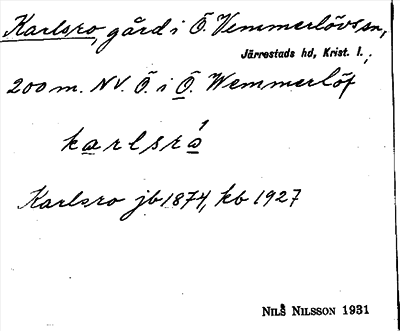 Karlsro, gård i Ö. Vemmerlövs sn,
Järrestads hd, Krist. l.,
200 m. NV. Ö. i Ö. Wemmerlöf
karlsrá
Karlsro jb 1874, kb 1927
NILS NILSSON 1931